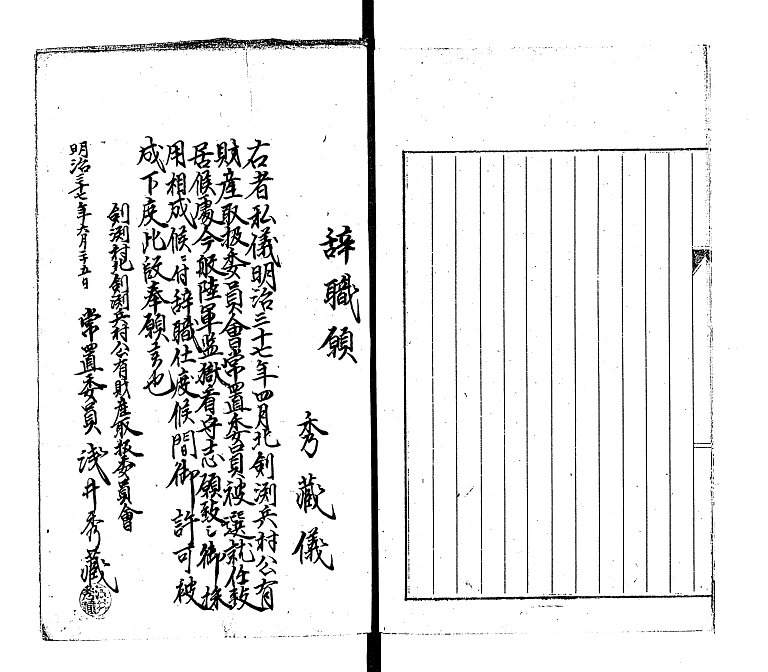 辞職願
秀藏儀
右者私儀明治三十七年四月北剣渕兵村公有
財産取扱委員會常置委員被選就任致
居候處今般陸軍監獄看守志願致シ御採
用相成候ニ付辞職仕度候間御許可被
成下度此段奉願候也
剣渕村北剣渕兵村公有財産取扱委員會
明治三十七年六月二十五日
常置委員 浅井秀藏